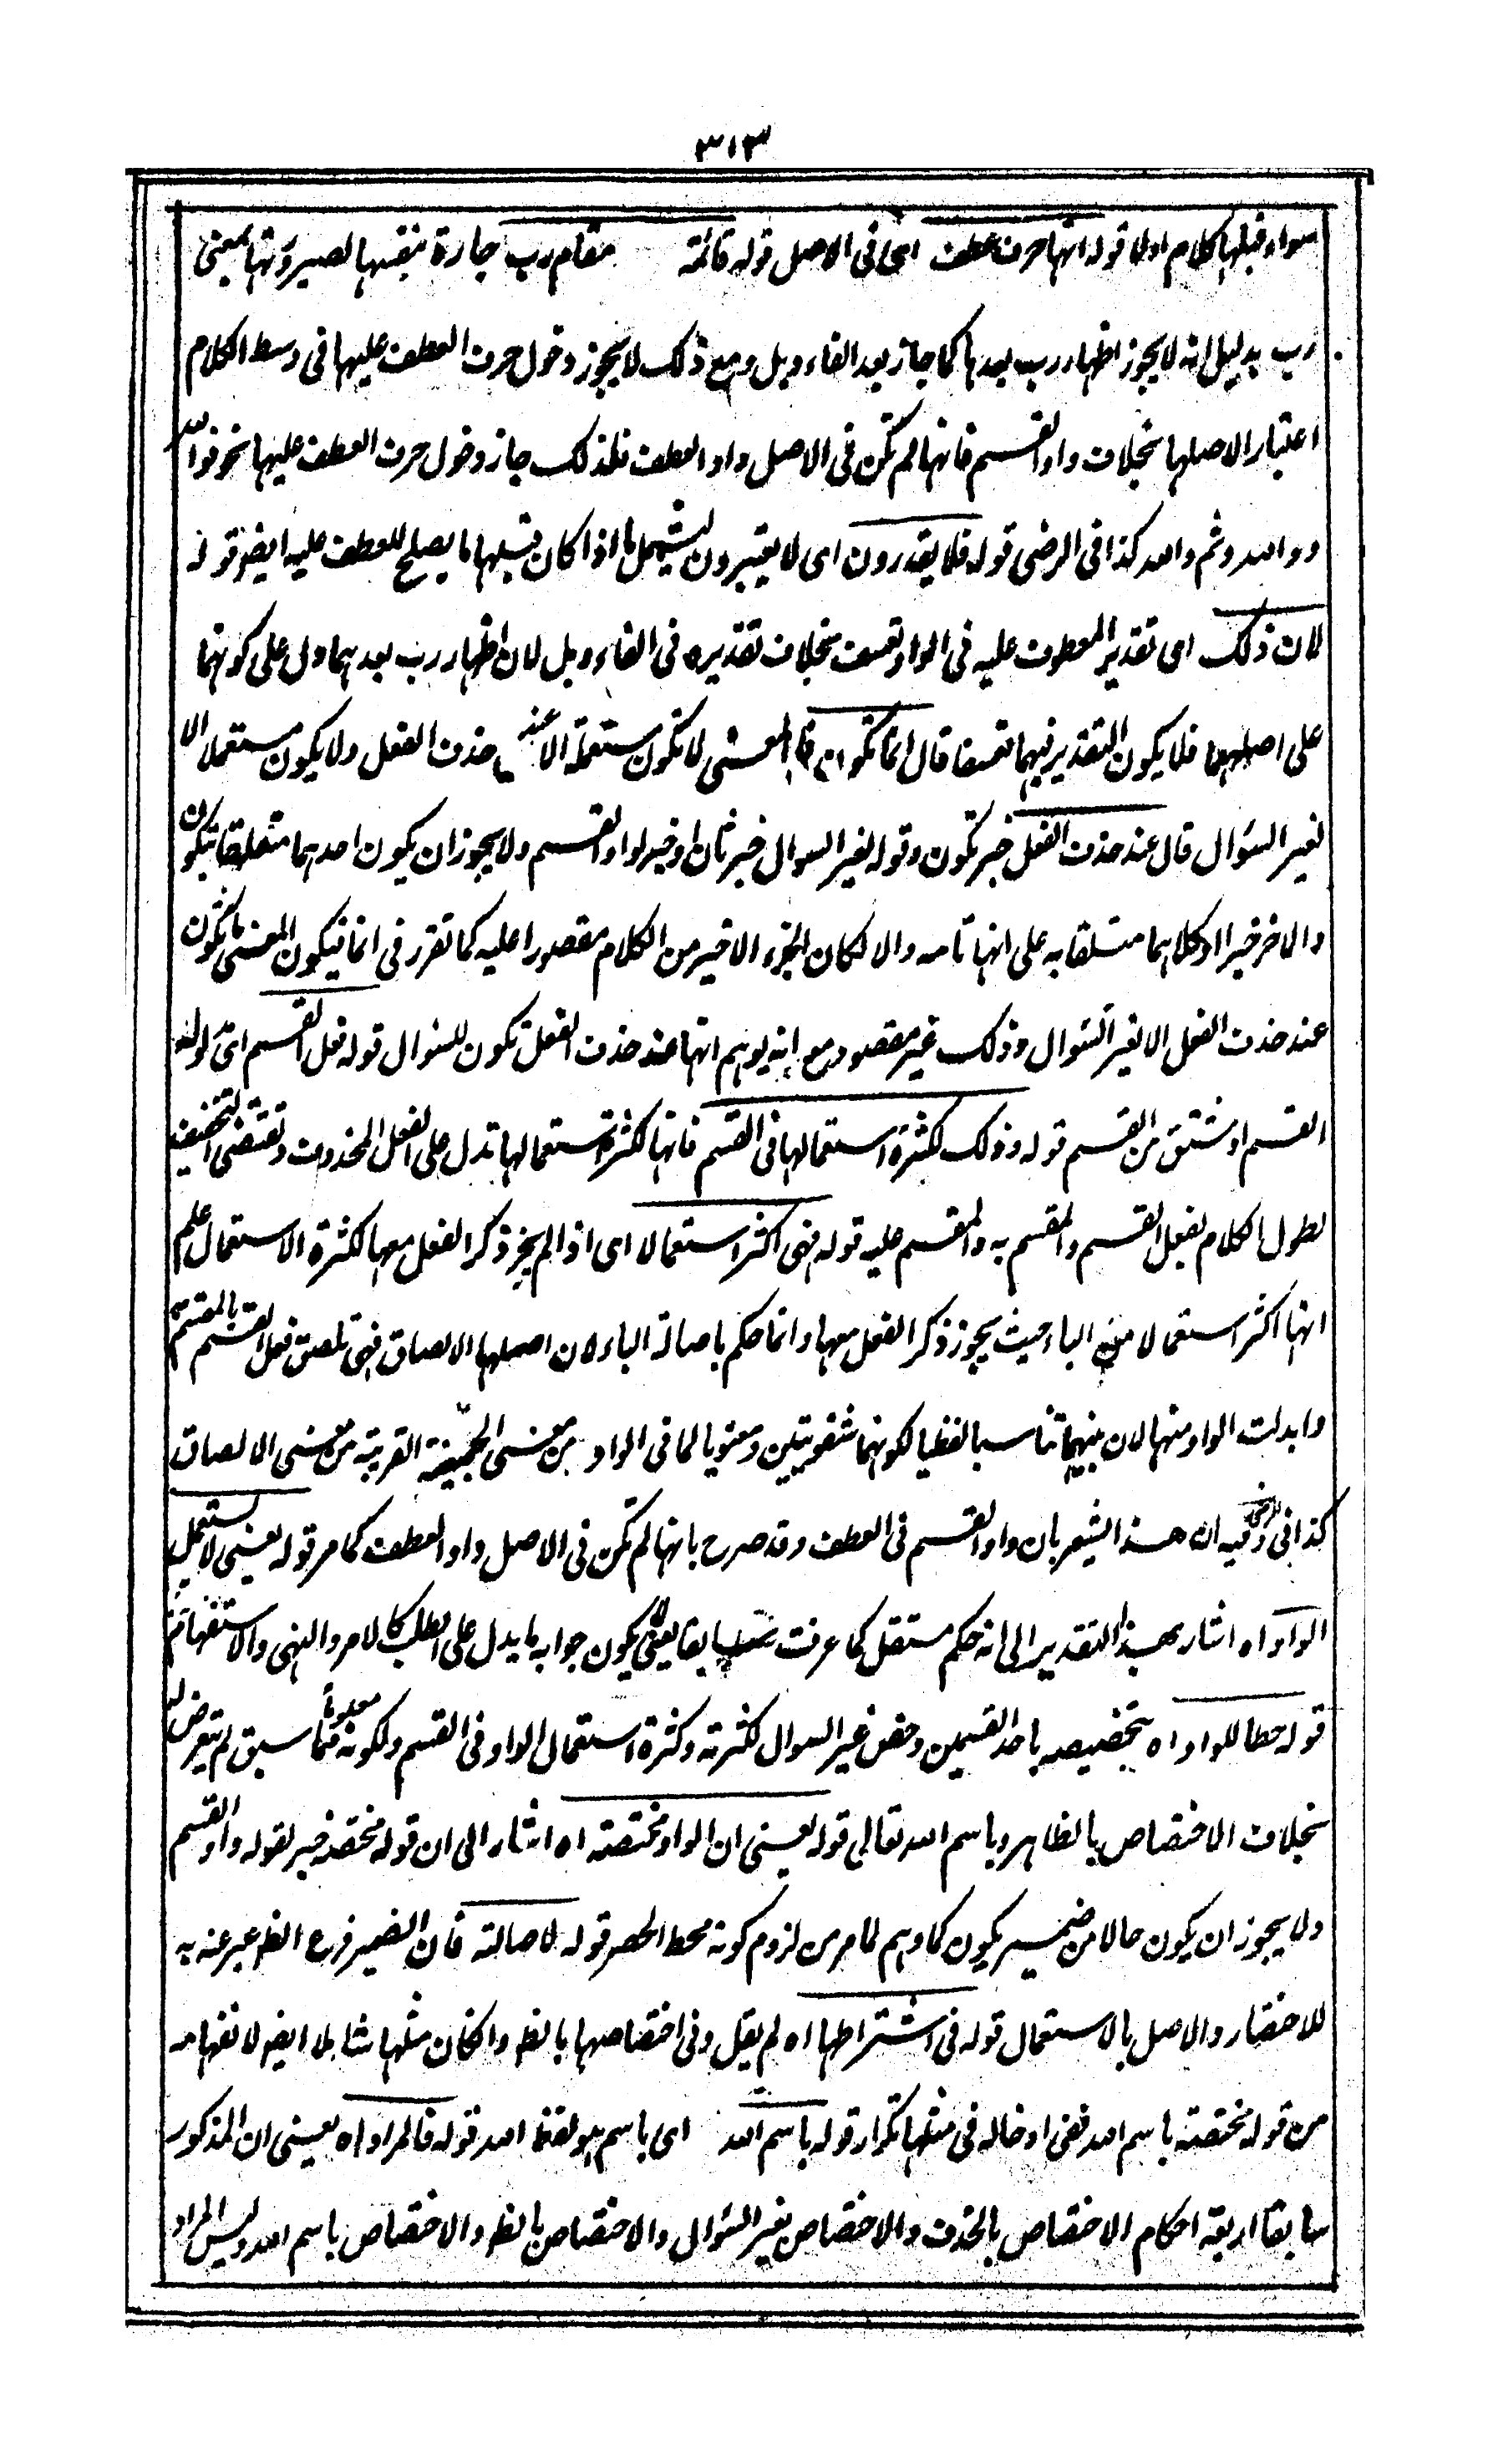 ٣١٣
سواء قبلها كلام اولا قوله انها حرف عطف اى فى الاصل قوله قائمة مقام رب جارة بنفسها لصيرورتها بمعنى
رب بدليل انه لا يجوز اظهار رب بعدها كما جاز بعد الفاء وبل ومع ذلك لا يجوز دخول حرف العطف عليها فى وسط الكلام
اعتبار الاصلها بخلاف واو القسم فانها لم تكن فى الاصل واو العطف فلذلك جاز دخول حرف العطف عليها نحو فو الله
ووالله وثم والله كذا فى الرضى قوله فلا يقدرون اى لا يعتبرون ليشمل ما اذا كان قبلها ما يصلح للعطف عليه ايضر قوله
لان ذلك اى تقدير المعطوف عليه فى الواو تعسف بخلاف تقديره فى الفاء وبل لان اظهار رب بعدهما دل على كونهما
على اصلهما فلا يكون التقدير فيهما تعسفا قال انما تكون المعنى لا تكون مستعملة الا عند حذف الفعل ولا يكون مستعملا الا
لغير السئوال قال عند حذف الفعل خبر تكون وقوله لغير السوال خبر ثان او خبر لواو القسم ولا يجوز ان يكون احدهما متعلقا بتكون
والاخر خبرا او كلاهما متعلقا به على انها تامه والا لكان الجزء الاخير من الكلام مقصورا عليه كما تقرر فى انما فيكون المعنى ما تكون
عند حذف الفعل الا لغير السئوال وذلك غير مقصود مع انه يوهم انها عند حذف الفعل تكون للسئوال قوله فعل القسم اى مدلوله
القسم او مشتق من القسم قوله وذلك لكثرة استعمالها فى القسم فانها لكثرة استعمالها تدل على الفعل المحذوف وتقتضى التخفيف
لطول الكلام بفعل القسم والمقسم به والمقسم عليه قوله فهى اكثر استعمالا اى اذا لم يجز ذكر الفعل معها لكثرة الاستعمال علم
انها اكثر استعمالا من الباء حيث يجوز ذكر الفعل معها وانما حكم باصالة الباء لان اصلها الالصاق فهى تلصق فعل القسم بالمقسم به
وابدلت الواو منها لان بينهما تناسبا لفظيا لكونهما شفويتين ومعنويا لما فى الواو من معنى الجمعية القريبة من معنى الالصاق
كذا فى الرضى وفيه ان هذا يشعر بان واو القسم فى العطف وقد صرح بانها لم تكن فى الاصل واو العطف كما مر قوله يعنى لا يستعمل
الواو اه اشار بهذا التقدير الى انه حكم مستقل كما عرفت سابقا يعنى لا يكون جوابه ما يدل على الطلب كالامر والنهى والاستفهام
قوله حطا للواو اه بتخصيصه باحد القسمين وخص غير السوال لكثرته وكثرة استعمال الواو فى القسم ولكونه معلوما مما سبق لم يتعرض له
بخلاف الاختصاص بالظاهر وباسم الله تعالى قوله يعنى ان الواو مختصة اه اشار الى ان قوله مختصة خبر لقوله واو القسم
ولا يجوز ان يكون حالا من ضمير يكون كما وهم لما مر من لزوم كونه محط الحصر قوله لاصالته فان الضمير فرع الظ عبر عنه به
للاختصار والاصل بالاستعمال قوله فى اشتراطها اه لم يقل وفى اختصاصها بالظ والكان مثلها شاملا ايضر لانفهامه
من قوله مختصة باسم الله ففى ادخاله فى مثلها تكرار قوله باسم الله اى باسم هو لفظ الله قوله فالمراد اه يعنى ان المذكور
سابقا اربعة احكام الاختصاص بالحذف والاختصاص بغير السئوال والاختصاص بالظ والاختصاص باسم الله وليس المراد